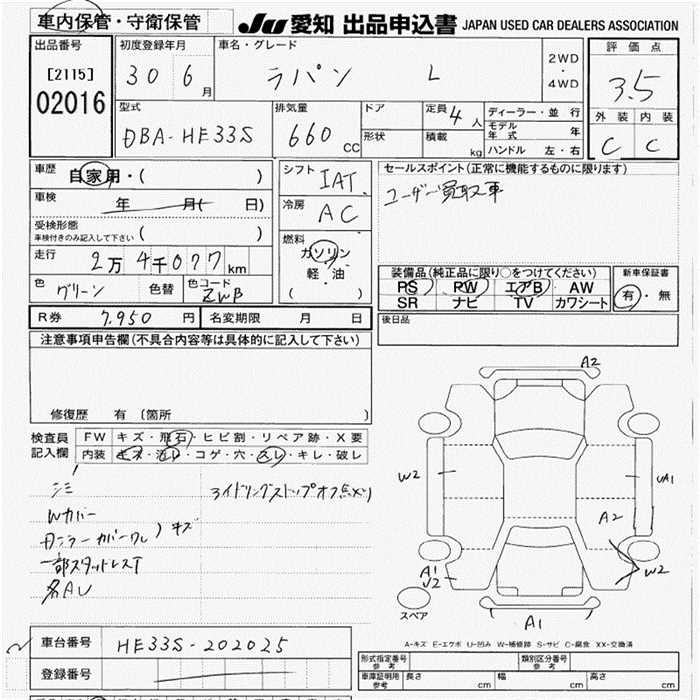 車内保管・守衛保管
JU 愛知 出品申込書 JAPAN USED CAR DEALERS ASSOCIATION
出品番号
[2115]
02016
初度登録年月
30 6月
車名・グレード
ラパン L
2WD
・
4WD
評価点
3.5
外装 内装
C C
型式
DBA-HE33S
排気量
660 CC
ドア
形状
定員 4人
積載 kg
ディーラー・並行
モデル年式 年
ハンドル 左・右
車歴
自家用・( )
車検
年 月( 日)
受検形態
車検付きのみ記入して下さい ( )
走行
2万4千077km
色
グリーン
色替
色コード
ZWB
シフト
IAT
冷房
AC
燃料
ガソリン
軽・油
( )
セールスポイント(正常に機能するものに限ります)
ユーザー買取車
装備品(純正品に限り○をつけてください)
PS PW エアB AW
SR ナビ TV カワシート
新車保証書
有・無
R券 7,950 円
名変期限 月 日
後日品
注意事項申告欄(不具合内容等は具体的に記入して下さい)
修復歴 有 (箇所 )
検査員
記入欄
FW キズ・飛石・ヒビ割・リペア跡・X要
内装 キズ・汚レ・コゲ・穴・スレ・キレ・破レ
シミ
アイドリングストップオフ点メリ
Wカバー
カバーワレ)キズ
一部スタッドレスT
名AU
A2
W2
UA1
A2
W2
A1
U2
A1
スペア
A-キズ E-エクボ U-凹み W-補修跡 S-サビ C-腐食 XX-交換済
車台番号
HE33S-202025
登録番号
形式指定番号
参考
類別区分番号
参考
車庫証明用
参考
長さ cm
幅 cm
高さ cm